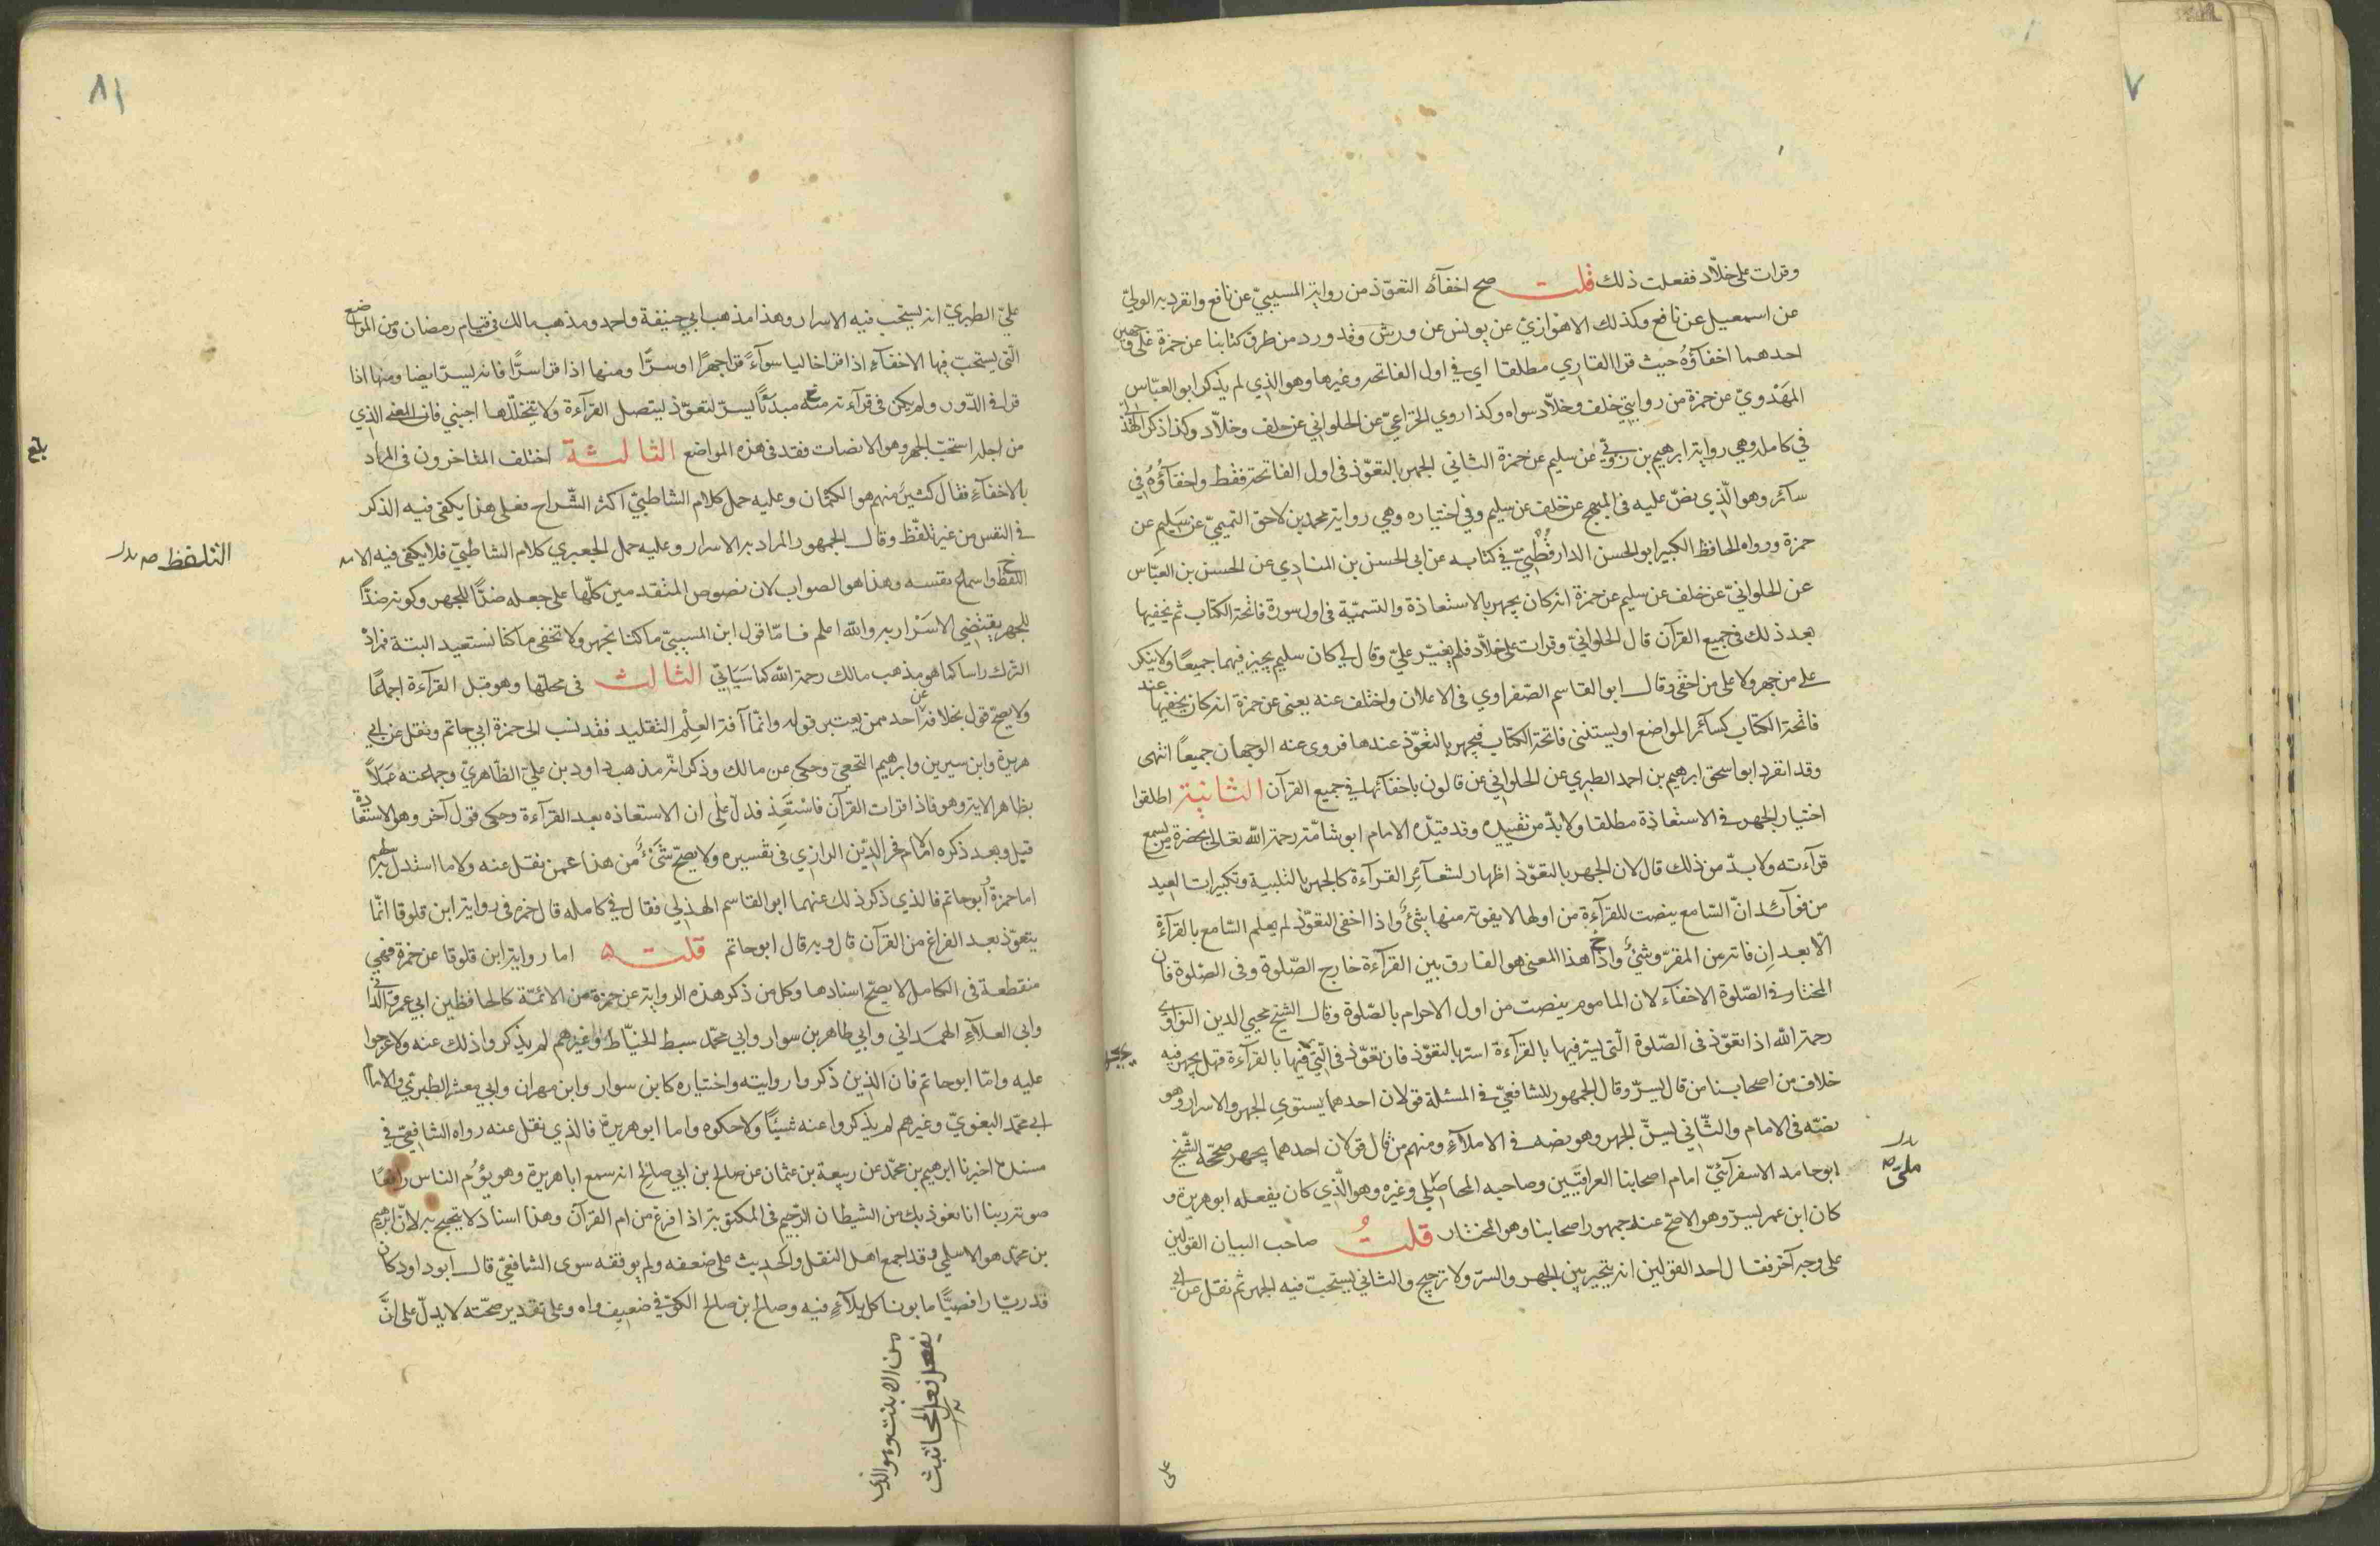 ٧
وقرات على خلّاد ففعلت ذلك قلت صح اخفآء التعوّذ من رواية المسيبيّ عن نافع وانفرد به الوليّ
عن اسمعيل عن نافع وكذلك الاهوازيّ عن يونس عن ورش وقد ورد من طرق كتابنا عن حمزة على وجهين
احدهما اخفآؤهُ حيث قرا القاري مطلقا اي في اول الفاتحه وغيرها وهو الذي لم يذكر ابو العبّاس
المَهْدويّ عن حمزة من روايتي خلف وخلّاد سواه وكذا روي الخزاعيّ عن الحلواني عن خلف وخلّاد وكذا ذكر الهذلي
في كامله وهي رواية ابرهيم بن زرقي عن سليم عن حمزة الثاني الجهر بالتعوّذ فى اول الفاتحة فقط واخفآؤُهُ في
سآئر وهو الّذي نصّ عليه فى المبهج عن خلف عن سليم وفي اختياره وهي رواية محمد بن لاحق التميميّ عن سَليم عن
حمزة ورواه الحافظ الكبير ابو الحسن الدارقُطْنِيّ في كتابه عن ابى الحسن بن المنادِي عن الحسن بن العبّاس
عن الحلوانيّ عن خلف عن سليم عن حمزة انه كان يجهر بالاستعاذة والتسميّة فى اول سورة فاتحة الكتاب ثم يخفيها
بعد ذلك فى جميع القرآن قال الحلوانيّ وقرات على خلّاد فلم يغيّر عليّ وقال لي كان سليم يجيز فيهما جميعًا ولا ينكر
على من جهر ولا على من اخفى وقال ابو القاسم الصّفراوي فى الاعلان واختلف عنه يعنى عن حمزة انه كان يخفيها عند
فاتحة الكتاب كسآئر المواضع او يستثنى فاتحة الكتاب فيجهر بالتعوّذ عندها فروى عنه الوجهان جميعًا انتهى
وقد انفرد ابو اسحق ابرهيم بن احمد الطبري عن الحلواني عن قالون باخفآئها في جميع القرآن الثانية اطلقوا
اختيار الجهر فى الاستعاذة مطلقا ولا بدّ من تقييده وقد قيّده الامام ابو شامّة رحمة الله تعالى بحضرة من يسمع
قرآءته ولا بدّ من ذلك قال لان الجهر بالتعوّذ اظهار لشعآئِر القرآءة كالجهر بالتلبية وتكبيرات العيد
من فوآئد انّ السّامع ينصت للقرآءة من اولها لا يفوته منها شئٌ واذا اخفى التعوّذ لم يعلم السّامع بالقرآءة
الّا بعد اِن فاته من المقرّو شئٌ واذا هذا المعنى هو الفارق بين القرآءة خارج الصّلوة وفى الصّلوة فان
المختار فى الصّلوة الاخفآء لان الماموم ينصت من اول الاحرام بالصّلوة وقال الشيخ محيي الدين النواوى
رحمة الله اذا تعوّذ فى الصّلوة الّتى ليسر فيها بالقرآءة اسرّ بالتعوّذ فان تعوّذ فى الّتى فيها بالقرآءة فهل يجهر فيه
خلاف من اصحابنا من قال ليسرّ وقال الجمهور للشافعيّ فى المسئلة قولان احدهما يستوي الجهر والاسرار وهو
نصّه فى الامام والثّاني ليسنّ الجهر وهو نصه فى الاملآء ومنهم من قال قولان احدهما يجهر صحّحه الشّيخ
ابو حامد الاسفرآئنيّ امام اصحابنا العراقيّين وصاحبه المحاملي وغيره وهو الّذي كان يفعله ابو هريرة و
كان ابن عمر ليسرّ وهو الاصحّ عند جمهور اصحابنا وهو المختار قلتُ صاحب البيان القولين
على وجه آخر فقال احد القولين انه يتخير بين الجهر والسرّ ولا ترجيح والثاني ليستحبّ فيه الجهر ثم نقل عن ابي
على
عليّ الطبريّ انه ليستحب فيه الاسرار وهذا مذهب ابي حنيفة واحمد ومذهب مالك في قيام رمضان ومن المواضع
الّتى يستحبّ فيها الاخفآء اذا قرا خاليا سوآءً قرا جهرًا او سرًّا ومنها اذا قرا سرًّا فانه ليسرّ ايضا ومنها اذا
قرا فى الدّور ولم يكن فى قرآءته مبدئًا ليسرّ لتعوّذ ليتصل القرآءة ولا يتخلّلها اجنبي فان المعنى الذي
من اجله استحبّ الجهر وهو الانصات فقد فى هذه المواضع الثالثة اختلف المتاخرون فى المراد
بالاخفآء فقال كثيرٌ منهم هو الكتمان وعليه حمل كلام الشاطبيّ اكثر الشّراح فعلى هذا يكفى فيه الذكر
فى النفس من غير تلفّظ وقال الجمهور المراد به الاسرار وعليه حمل الجعبري كلام الشاطبيّ فلا يكفى فيه الا
التلفظ
اللفظ واسماع نفسه وهذا هو الصواب لان نصوص المتقدمين كلّها على جعله ضدًّا للجهر وكونه ضدًّا
للجهر يقتضي الاسرار به والله اعلم فامّا قول ابن المسيبيّ ما كنا نجهر ولا نخفى ما كنا نستعيد البتة فمراده
الترك راسا كما هو مذهب مالك رحمة الله كما سَيَاتيّ الثالث فى محلّها وهو قبل القرآءة اجماعًا
ولا يصحّ قول بخلافه عن احد ممن يعتبر قوله وانّما آفة العِلْم التقليد فقد نسب الى حمزة ابي حاتم ونقل عن ابي
هريرة وابن سيرين وابرهيم النخعيّ وحكى عن مالك وذكر انّه مذهب داود بن عليّ الظّاهريّ وجماعته عملاً
بظاهر الاية وهو فاذا قرات القرآن فاسْتَعِذ فدلّ علٰى ان الاستعاذه بعد القرآءة وحكى قول آخر وهو الاستعاذة
قبل وبعد ذكره الامام فخر الدّين الرازي فى تفسيره ولا يصحّ شَئٌ من هذا عمن نقل عنه ولا ما استدل به
اما حمزة وابو حاتم فالذي ذكر ذلك عنهما ابو القاسم الهذلي فقال في كامله قال حمزه فى رواية ابن قلوقا انّما
يتعوّذ بعد الفراغ من القرآن قال وبه قال ابو حاتم قلت اما رواية ابن قلوقا عن حمزة فهي
منقطعة فى الكامل لا يصحّ اسنادها وكل من ذكر هذه الرواية عن حمزة من الائمّة كالحافظين ابي عمرو الداني
وابى العلآء الهمَداني وابي طاهر بن سوار وابي محمّد سبط الخيّاط وغيرهم لم يذكروا ذلك عنه ولا عرجوا
عليه وامّا ابو حاتم فان الّذين ذكروا روايته واختياره كابن سوار وابن مهران وابي معشر الطبريّ والامام
ابي محمّد البغويّ وغيرهم لم يذكروا عنه شيئًا ولا حكوه واما ابو هريرة فالذي نقل عنه رواه الشافعيّ في
مسنده اخبرنا ابرهيم بن محمّد عن ربيعة بن عثمان عن صالح بن ابي صالح انه سمع ابا هريرة وهو يؤمّ الناس رافعًا
صوته ربنا انا نعوذ بك من الشيطان الرّجيم فى المكتوبة اذا فرغ من ام القرآن وهذا اسناد لا يحتجّ به لانّ ابرهيم
بن محمّد هو الاسلمي وقد اجمع اهل النقل والحديث على ضعفه ولم يوثقه سوى الشافعيّ قال ابو داود كان
قدريّا رافضيًّا مابونا كل بلآء فيه وصالح بن صالح الكوفي ضعيف واه وعلى تقدير صحّته لا يدلّ على انّ